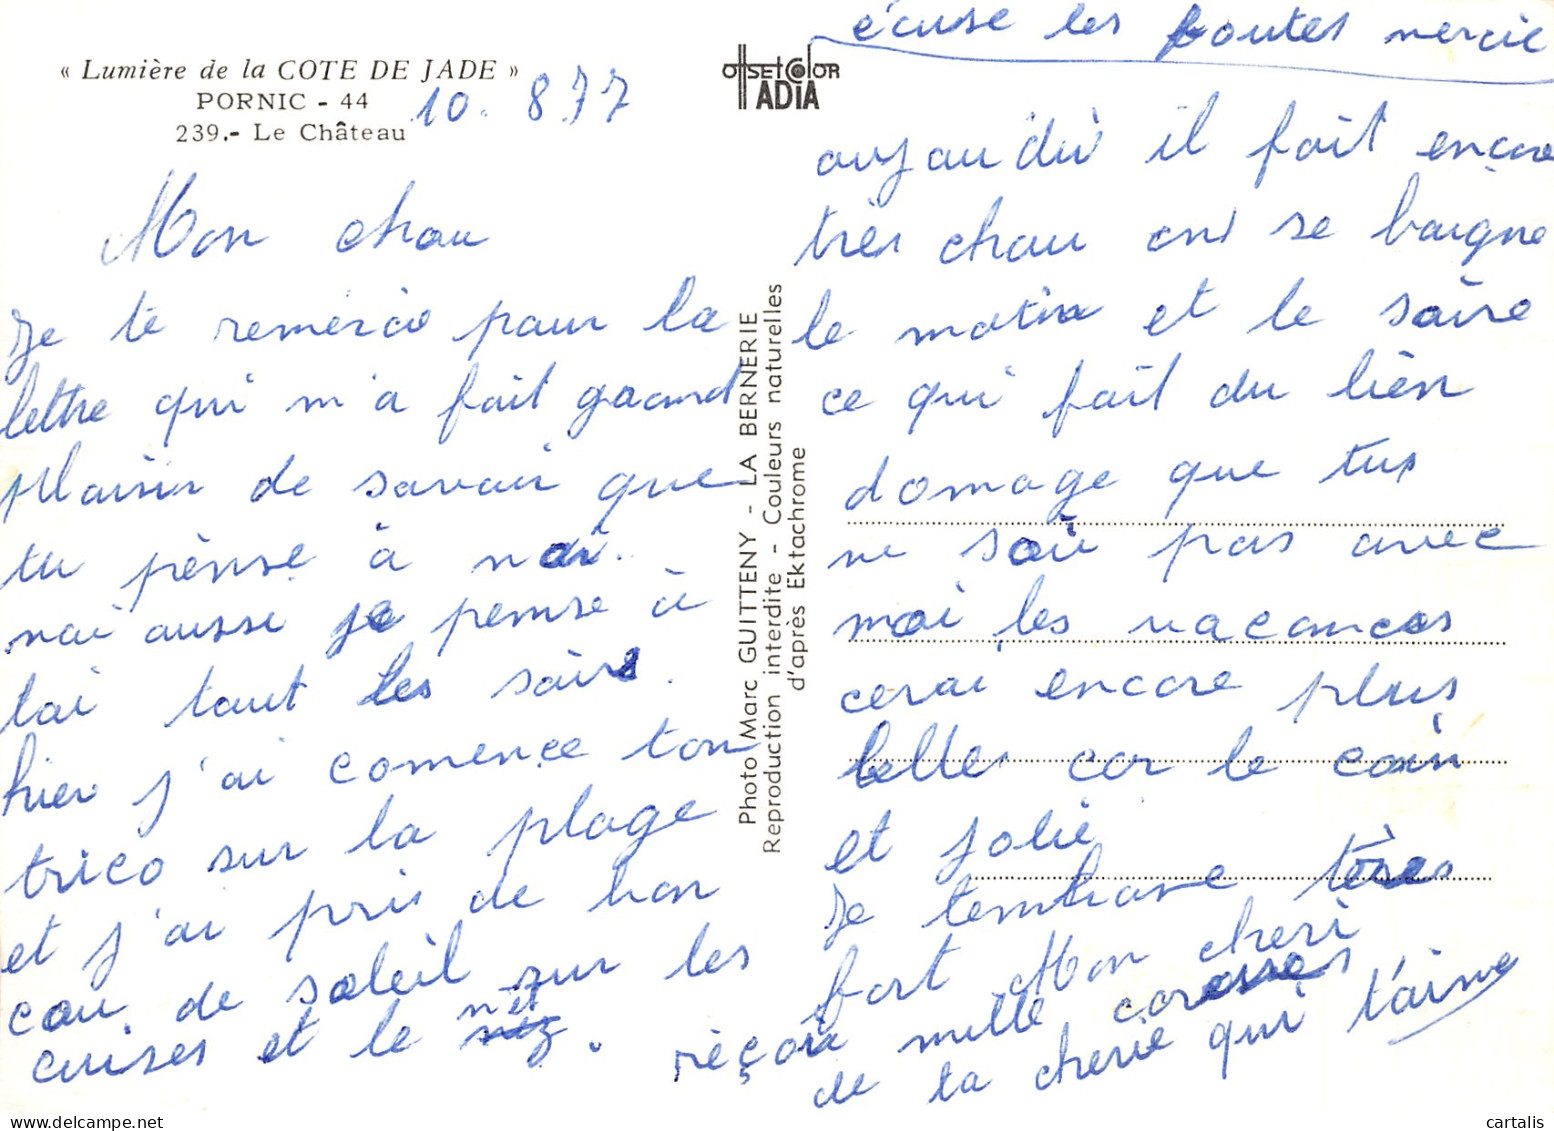 « Lumière de la COTE DE JADE »
PORNIC - 44
239.- Le Château
10. 8 77
Mon chou
Je te remércie pour la
lettre qui m'a fait graand
plaisir de savoir que
tu pènse à moi.
moi aussi je pense à
toi tout les soirs.
hier j'ai comence ton
trico sur la plage
et j'ai pris de bon
cou de soleil sur les
cuises et le nét.
OFFSET COLOR
ADIA
Photo Marc GUITTENY - LA BERNERIE
Reproduction interdite - Couleurs naturelles
d'après Ektachrome
écuse les foutes mercie
aujau'du il fait encore
très chau ont se baigne
le matin et le soire
ce qui fait du bièn
domage que tus
ne soie pas avec
moi les vacances
cerai encore plus
belle car le coin
et jolie
Je tembrase tères
fort Mon cheri
réçoie mille coresses
de ta cherie qui t'aime
cartalis